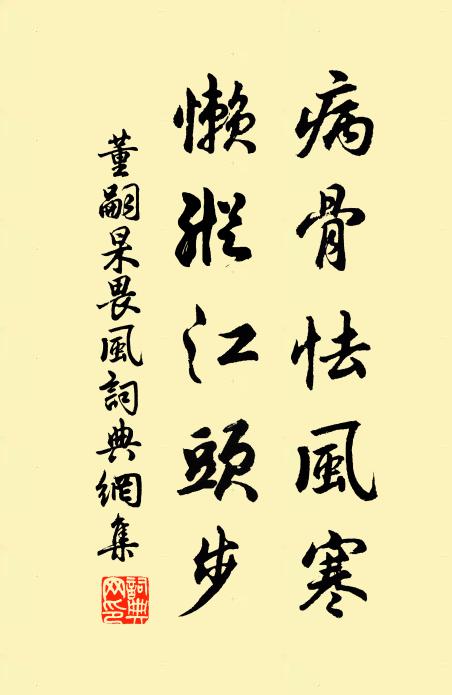 病骨怯風寒
懶縱江頭步
董嗣杲畏風詞典網集
詞典网印